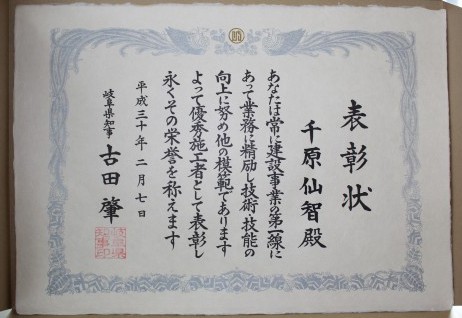 表彰状
千原仙智殿
あなたは常に建設事業の第一線に
あって業務に精励し技術・技能の
向上に努め他の模範であります
よって優秀施工者として表彰し
永くその栄誉を称えます
平成三十年二月七日
岐阜県知事 古田肇